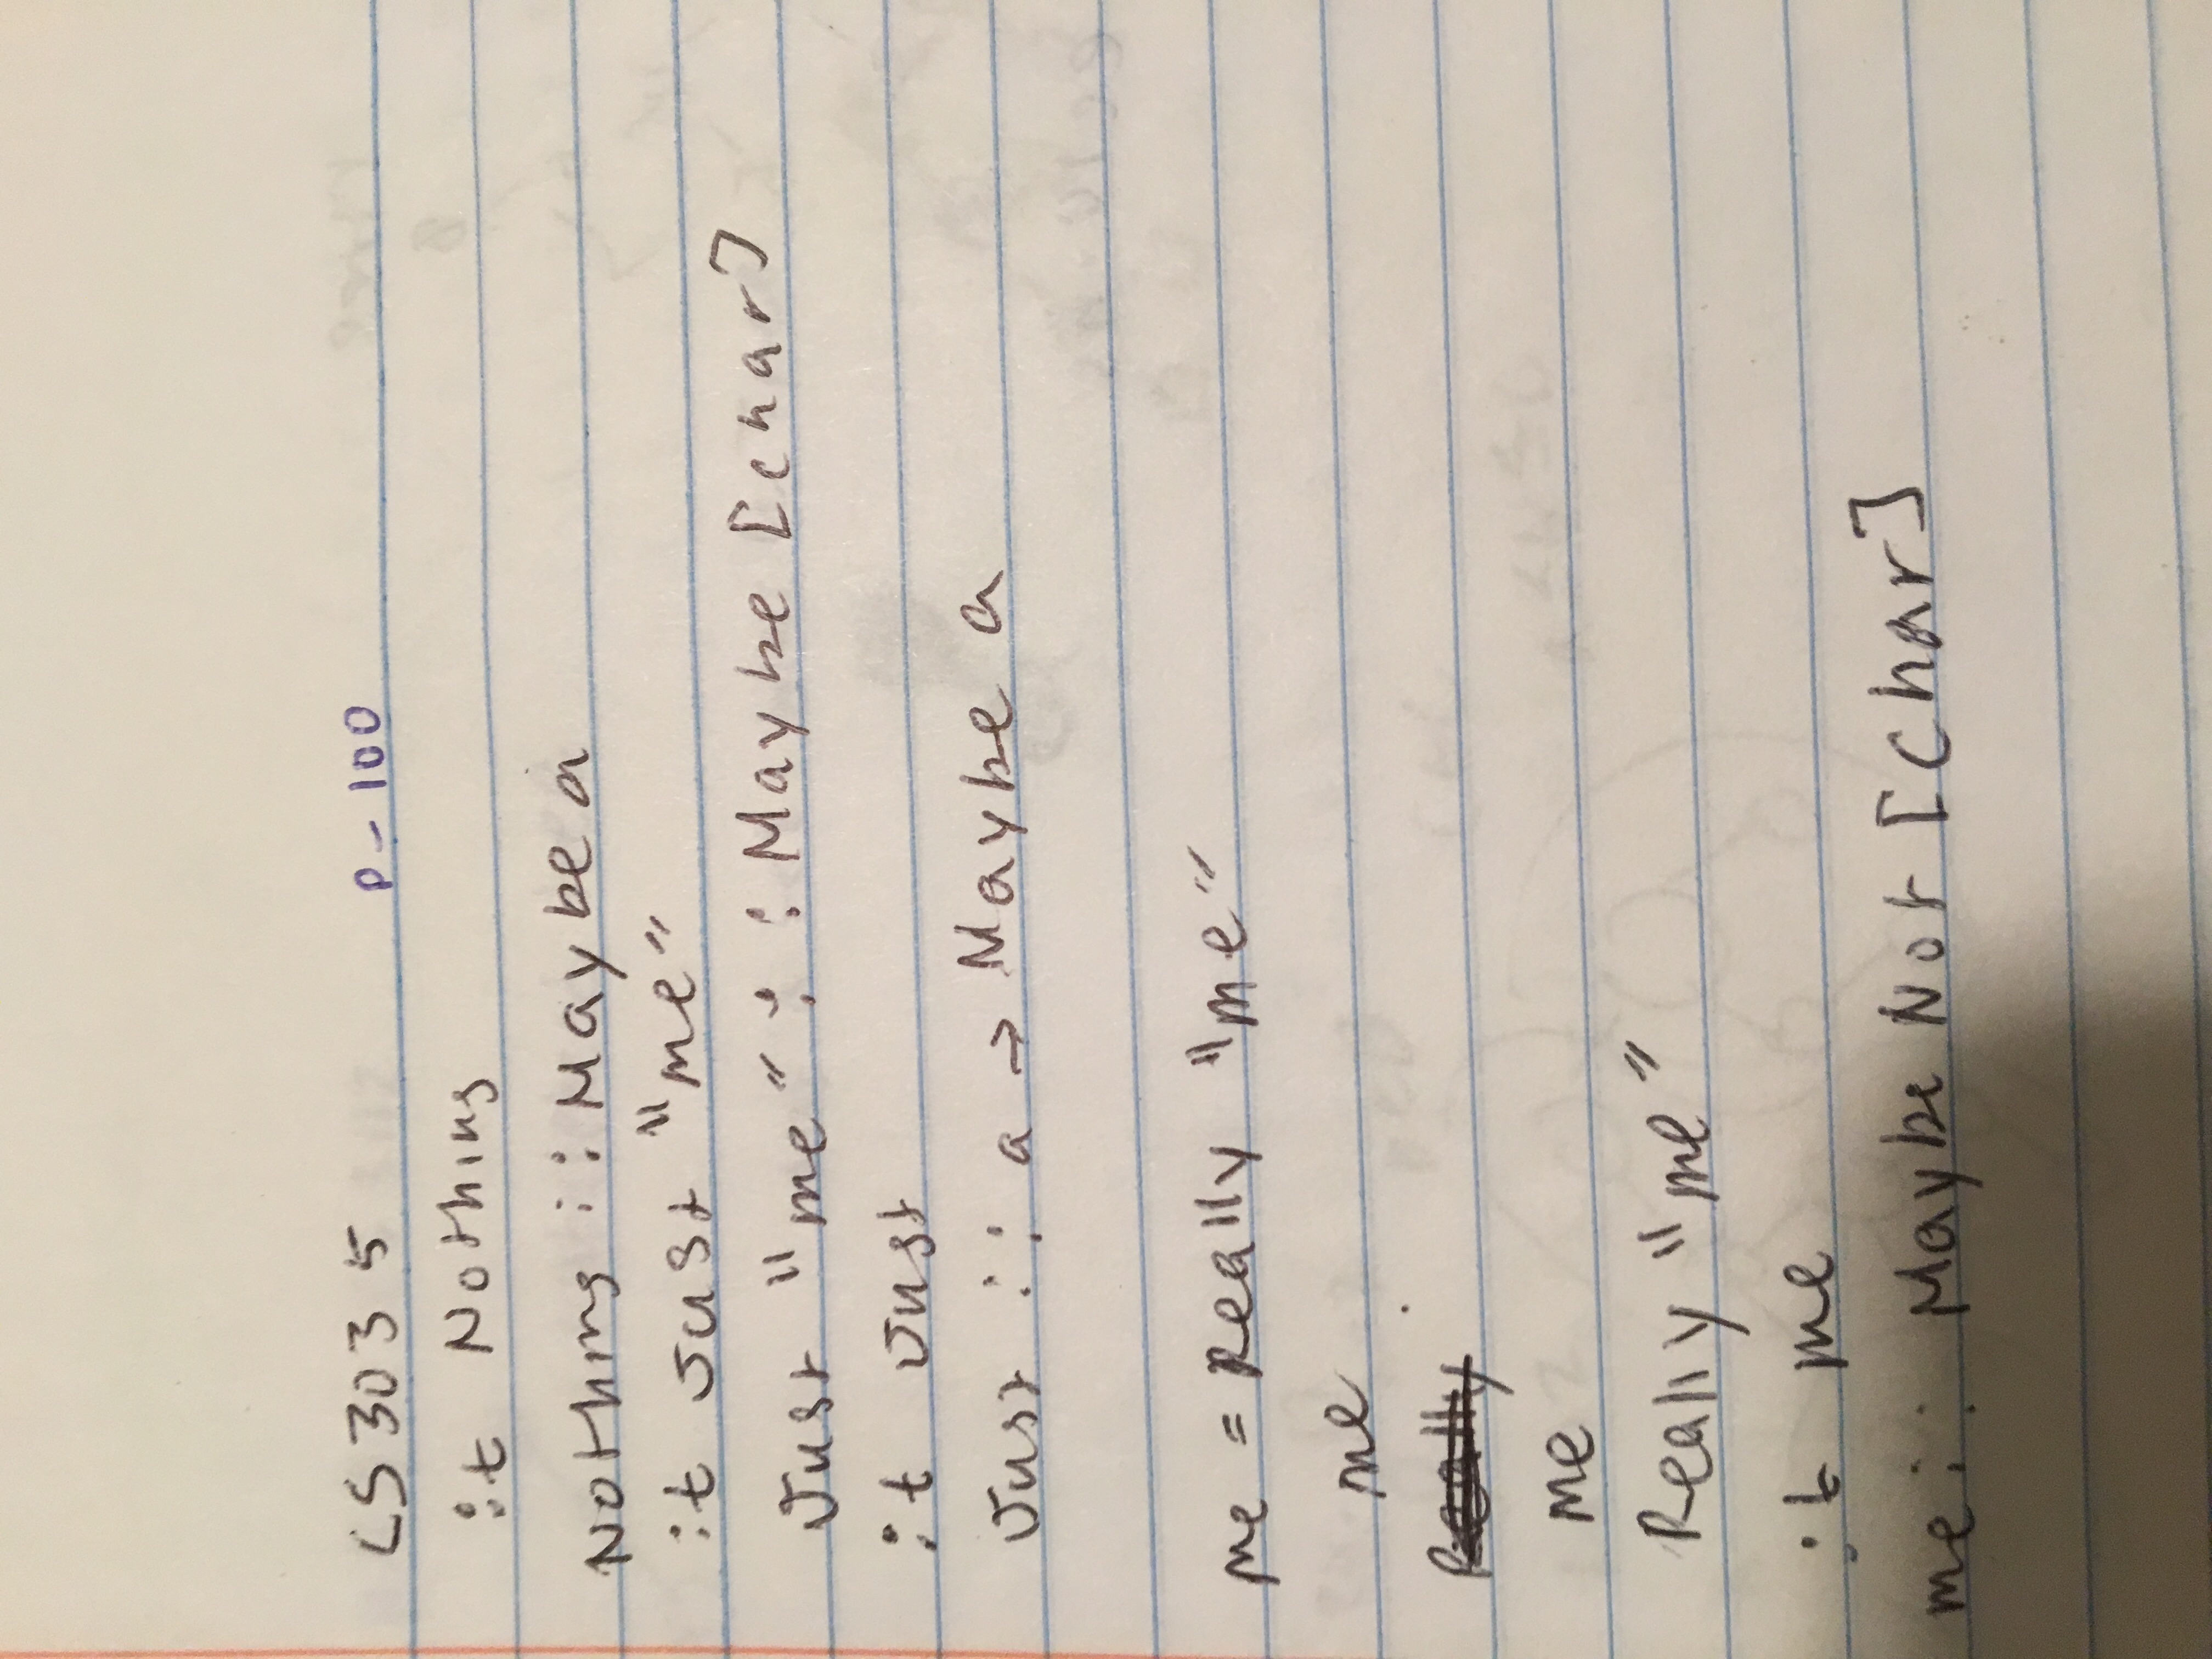 CS3035 P-100
:t Nothing
Nothing :: Maybe a
:t Just "me"
Just "me" :: Maybe [char]
:t Just
Just :: a → Maybe a
me = Really "me"
me
Really
me
Really "me"
:t me
me :: Maybe Not [Char]